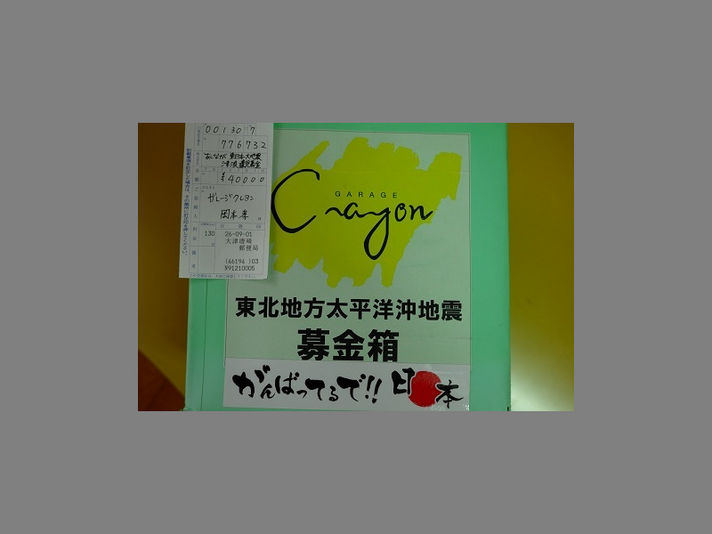 00130 7
776732
あしなが 東日本大地震
津波遺児基金
¥40000
ガレージクレヨン
130
26-09-01
大津唐崎
郵便局
(46194 )03
N91210005
GARAGE
Crayon
東北地方太平洋沖地震
募金箱
がんばってるで!!日本